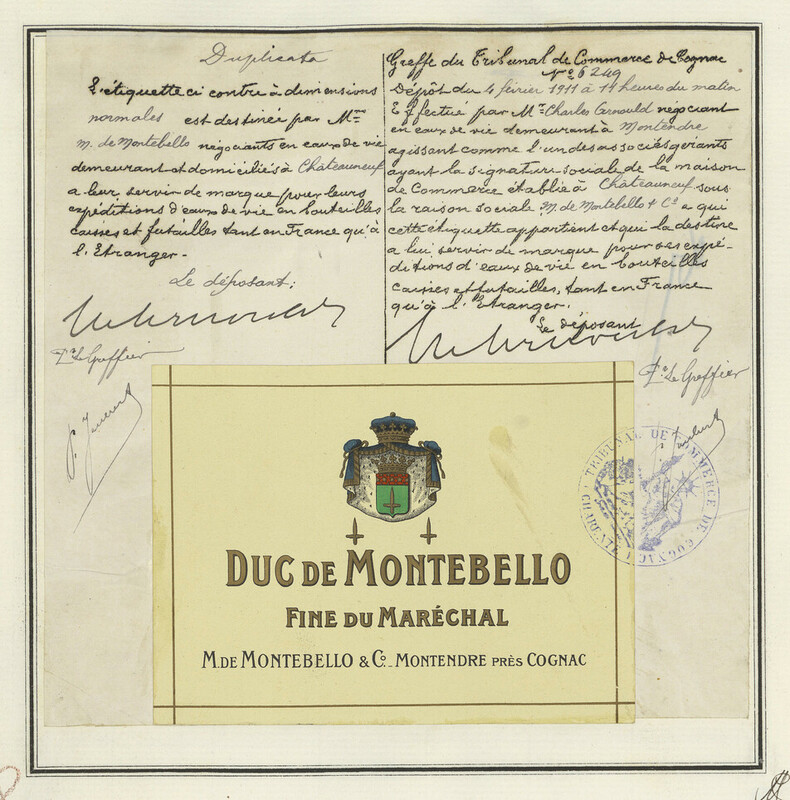 Duplicata
L'étiquette ci contre à dimensions
normales est destinée par Mrs
M. de Montebello négociants en eaux de vie
demeurant et domiciliés à Châteauneuf
a leur servir de marque pour leurs
expéditions d'eaux de vie en bouteilles
caisses et futailles tant en France qu'à
l'Etranger.
Le déposant:
Pr Le Greffier
Greffe du Tribunal de Commerce de Cognac
No 6249
Dépôt du 4 février 1911 à 11 heures du matin
Effectué par Mr Charles négociant
en eaux de vie demeurant à Montendre
agissant comme l'un des associés gérants
ayant la signature sociale de la maison
de Commerce établie à Châteauneuf sous
la raison sociale M. de Montebello & Co a qui
cette étiquette appartient et qui la destine
a lui servir de marque pour ses expé-
ditions d'eaux de vie en bouteilles
caisses et futailles, tant en France
qu'à l'Etranger.
Le déposant
Pr Le Greffier
TRIBUNAL DE COMMERCE DE COGNAC
CHARENTE
DUC DE MONTEBELLO
FINE DU MARÉCHAL
M. DE MONTEBELLO & Co. MONTENDRE PRÈS COGNAC